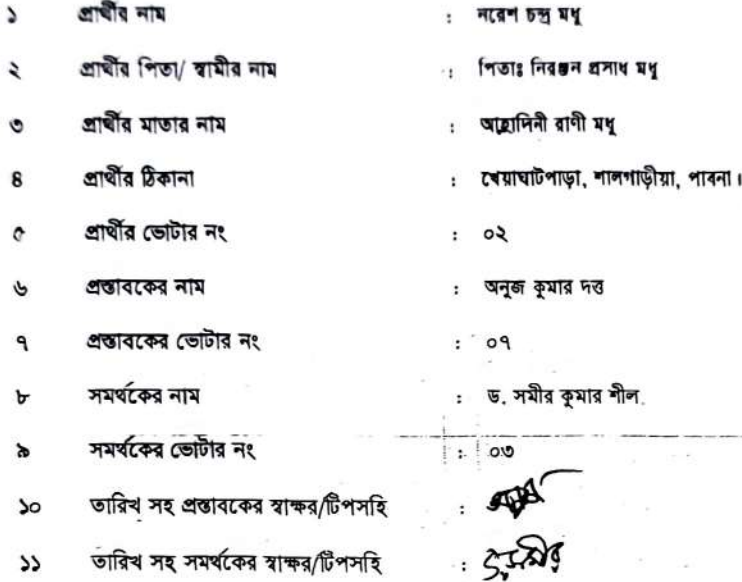 ১ প্রার্থীর নাম : নরেশ চন্দ্র মধু
২ প্রার্থীর পিতা/ স্বামীর নাম : পিতাঃ নিরঞ্জন প্রসাধ মধু
৩ প্রার্থীর মাতার নাম : আহ্লাদিনী রাণী মধু
৪ প্রার্থীর ঠিকানা : খেয়াঘাটপাড়া, শালগাড়ীয়া, পাবনা।
৫ প্রার্থীর ভোটার নং : ০২
৬ প্রস্তাবকের নাম : অনুজ কুমার দত্ত
৭ প্রস্তাবকের ভোটার নং : ০৭
৮ সমর্থকের নাম : ড. সমীর কুমার শীল
৯ সমর্থকের ভোটার নং : ০৩
১০ তারিখ সহ প্রস্তাবকের স্বাক্ষর/টিপসহি :
১১ তারিখ সহ সমর্থকের স্বাক্ষর/টিপসহি :